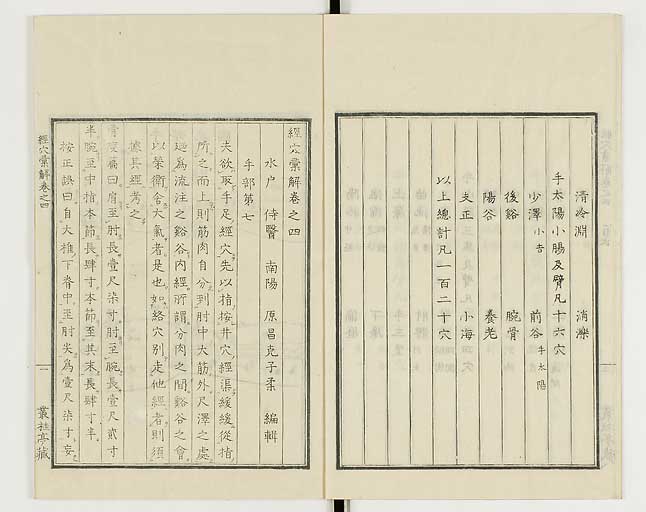 清冷淵　消濼
手太陽小腸及臂凡十六穴
少澤小吉　前谷手太陽
後谿　腕骨
陽谷　養老
支正　小海
以上總計凡一百二十穴
經穴彙解卷之四
水戶　侍醫　南陽　原昌克子柔　編輯
手部第七
夫欲取手足經穴先以指按井穴經渠緩緩從指
所之而上則筋肉自分到肘中大筋外尺澤之處
廼爲流注之谿谷內經所謂分肉之間谿谷之會
以榮衞舍大氣者是也如絡穴別走他經者則須
據其經考之
骨度篇曰肩至肘長壹尺柒寸肘至腕長壹尺貳寸
半腕至中指本節長肆寸本節至其末長肆寸半
按正誤曰自大椎下脊中至肘尖爲壹尺柒寸妄
經穴彙解卷之四
一
叢桂亭藏